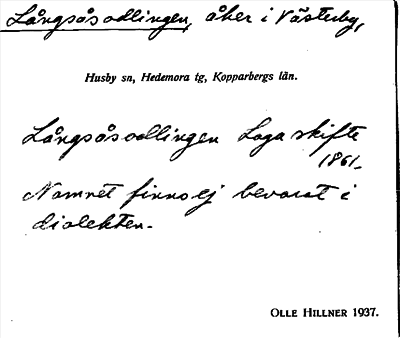 Långsåsodlingen, åker i Västerby,
Husby sn, Hedemora tg, Kopparbergs län.
Långsåsodlingen Laga skifte
1861.
Namnet finns ej bevarat i
dialekten.
OLLE HILLNER 1937.